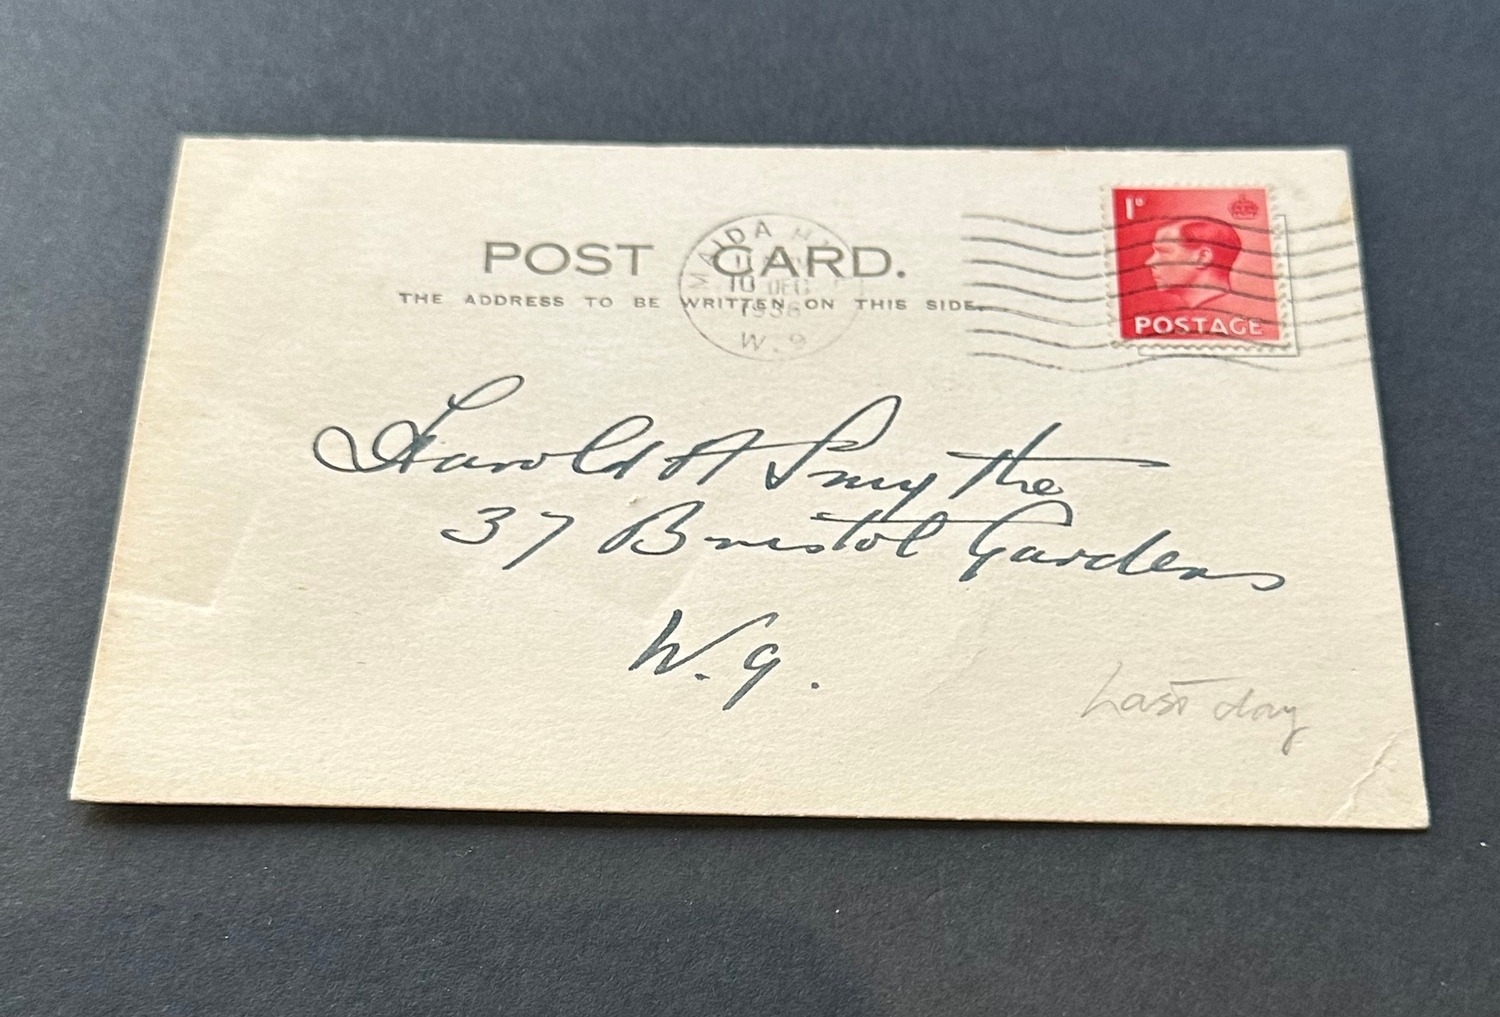 POST CARD.
THE ADDRESS TO BE WRITTEN ON THIS SIDE.
MAIDA H
10 DEC
1936
W.9
1D
POSTAGE
Harold A Smythe
37 Bristol Gardens
W.9.
Last day